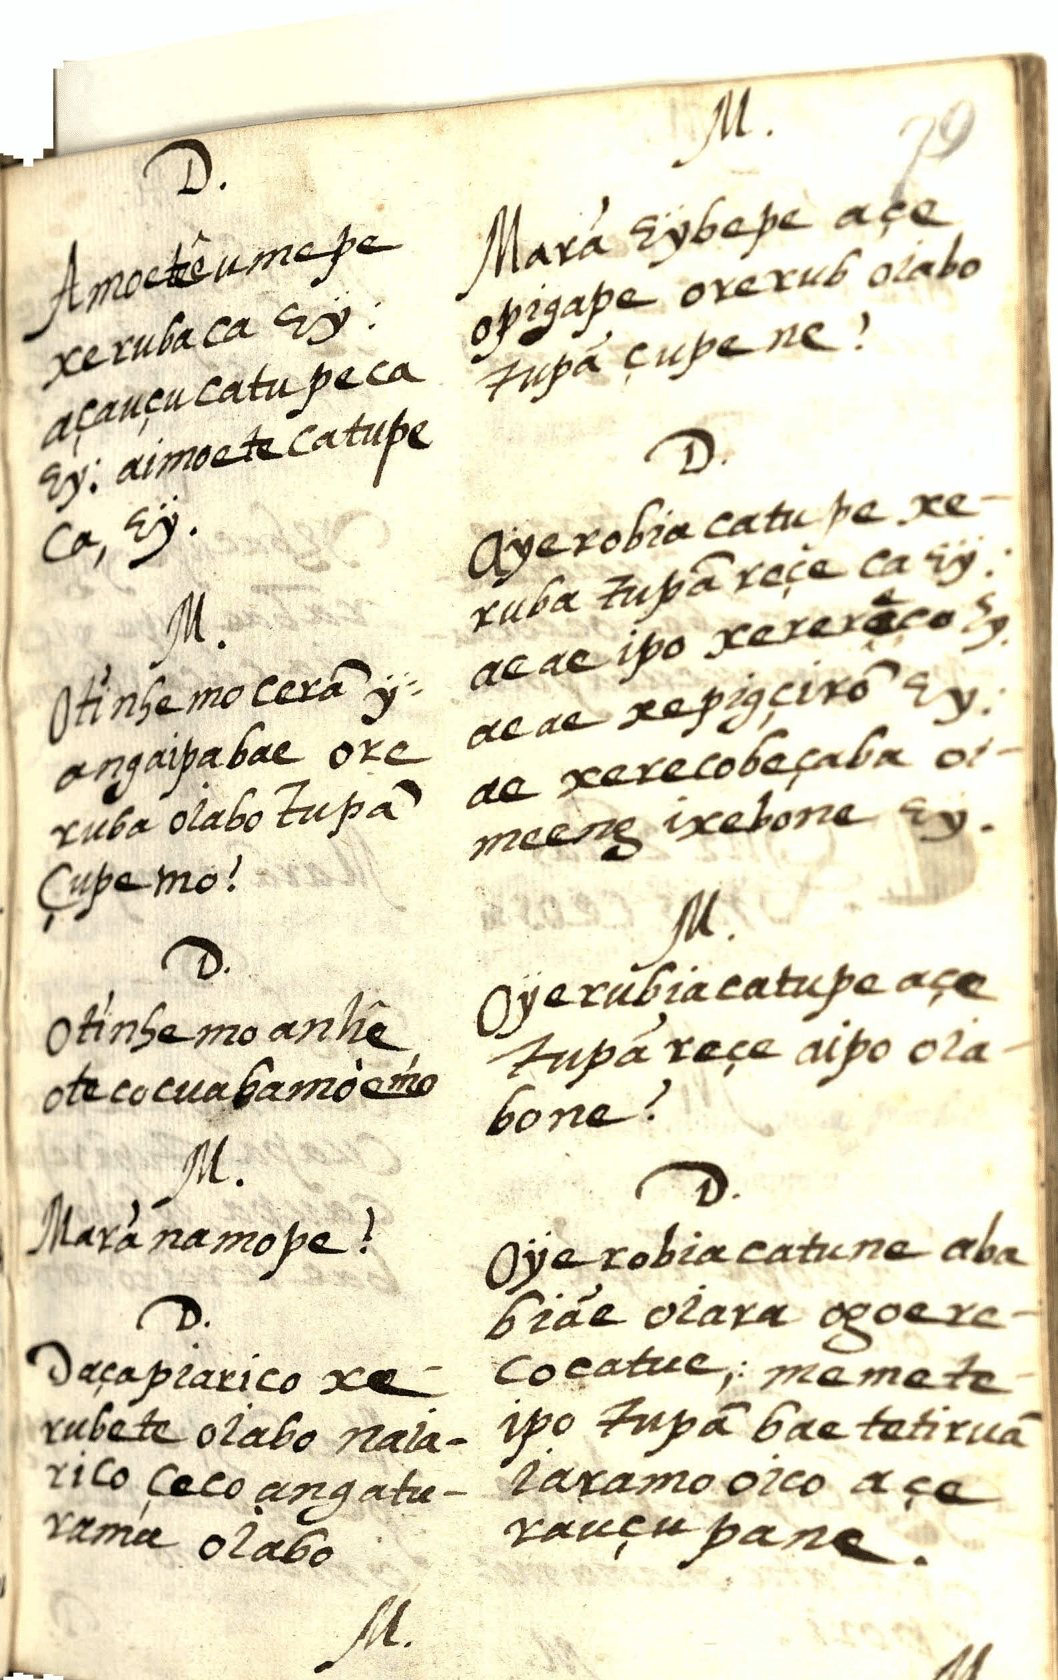 D.
Amoeteê umepe
xerubaca Eÿ:
açauçucatupeca
Ey: aimoetecatupe
ca, Eÿ.
M.
Otínhemocerã ÿ-
angaipabae ore
ruba oiabo Tupã
Çupemo?
D.
Otínhemo anhê,
otecocuabamoemo
M.
Marã namope?
D.
Daçapiarico xe-
rubete oiabo naia-
rico çeco angatu-
rama oiabo
M.
M.
79
Marã Eybepe açe
opigape orerub oiabo
tupã çupene?
D.
Aÿerobia catupe xe-
ruba tupã reçe ca Eÿ:
aeae ipo xererecо Ey.
aeae xepigçirõ Ey:
ae xerecobeçaba oi-
meeng ixebone Eÿ.
M.
Oÿerubiacatupe açe
tupã reçe aipo oia-
bone?
D.
Oÿerobiacatune aba
biãe oiara ogoere-
cocatue,: memete-
ipo tupã bae tetiruã
iaramo oico açe
rauçupane.
M.